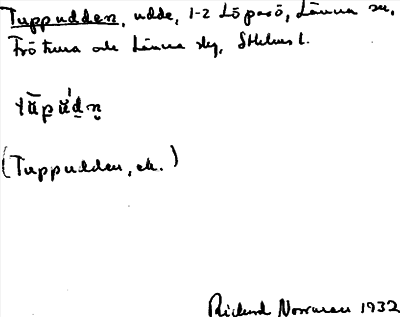 Tuppudden, udde, 1-2 Löparö, Länna sn,
Frötuna och Länna skg, Sthlms l.
tŭ̄pŭ̀dn̥
(Tuppudden, ek.)
Rickard Norrman 1932